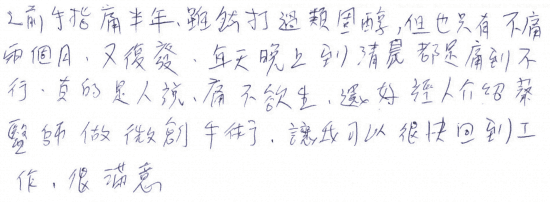 之前手指痛半年,雖然打過類固醇,但也只有不痛
兩個月,又復發,每天晚上到清晨都是痛到不
行,真的是人說,痛不欲生,還好經人介紹蔡
醫師做微創手術,讓我可以很快回到工
作,很滿意